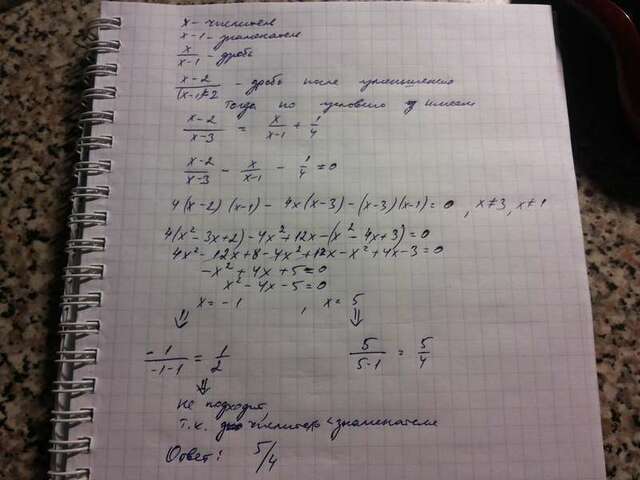 x - числитель
x-1 - знаменатель
x/(x-1) - дробь
(x-2)/((x-1)-2) - дробь после уменьшения
Тогда по условию имеем
(x-2)/(x-3) = x/(x-1) + 1/4
(x-2)/(x-3) - x/(x-1) - 1/4 = 0
4(x-2)(x-1) - 4x(x-3) - (x-3)(x-1) = 0, x≠3, x≠1
4(x²-3x+2) - 4x²+12x-(x²-4x+3)=0
4x²-12x+8-4x²+12x-x²+4x-3=0
-x²+4x+5=0
x²-4x-5=0
x=-1, x=5
⇓ ⇓
-1/(-1-1) = 1/2 5/(5-1) = 5/4
⇓
Не подходит,
т.к. числитель < знаменателя
Ответ: 5/4